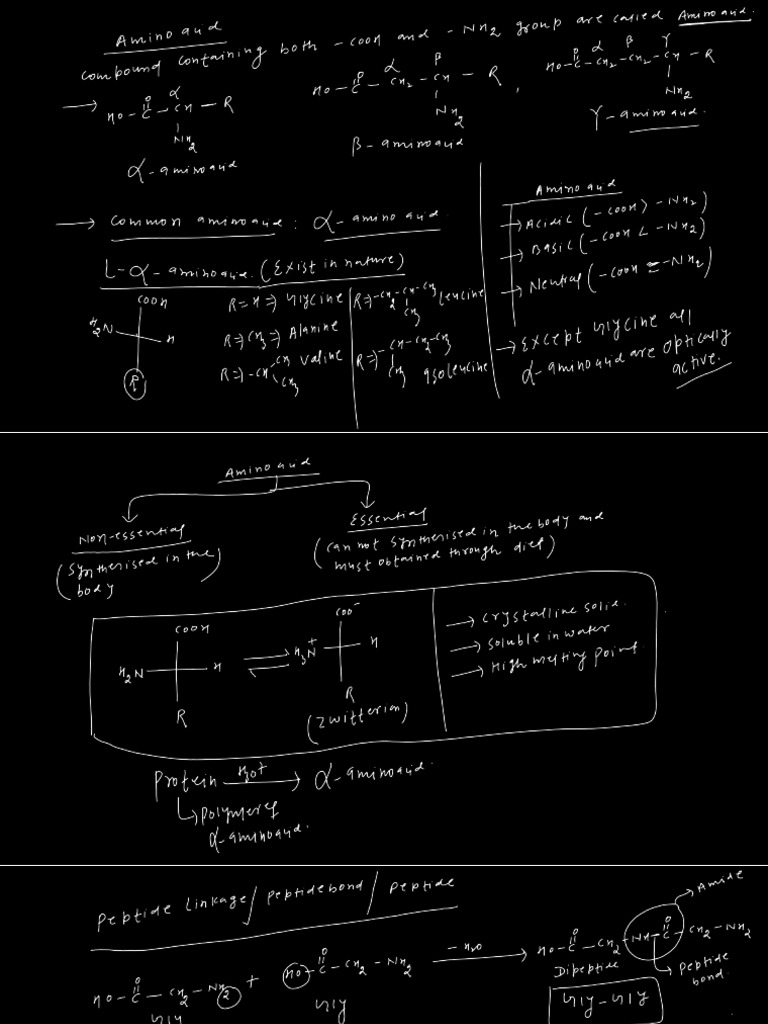 Amino acid
Compound containing both -COOH and -NH2 group are called Amino acid.
→ HO-C-CH-R
O
α
NH2
α-amino acid
HO-C-CH2-CH-R,
O
α
β
NH2
β-amino acid
HO-C-CH2-CH2-CH-R
O
α
β
γ
NH2
γ-amino acid.
→ Common amino acid: α-amino acid.
L-α-amino acid. (Exist in nature)
COOH
H2N
H
R
R=H⇒ Glycine
R⇒CH3⇒ Alanine
R⇒-CH
CH
CH3
Valine
R⇒-CH2-CH-CH3
CH3
Leucine
R⇒-CH-CH2-CH3
CH3
Isoleucine
Amino acid
→ Acidic (-COOH > -NH2)
→ Basic (-COOH < -NH2)
→ Neutral (-COOH = -NH2)
→ Except Glycine all
α-amino acid are optically
active.
Amino acid
Non-essential
(Synthesised in the
body)
Essential
(Can not synthesised in the body and
must obtained through diet)
COOH
H2N
H
R
⇌
COO-
H3N+
H
R
(Zwitterion)
→ Crystalline solid.
→ Soluble in water
→ High melting point.
Protein H3O+ → α-amino acid.
↳ polymer of
α-amino acid.
Peptide Linkage/peptide bond/peptide
HO-C-CH2-NH2
O
Gly
+
HO-C-CH2-NH2
O
Gly
-H2O →
HO-C-CH2-NH-C-CH2-NH2
O
O
→ Amide
Dipeptide
→ Peptide
bond.
Gly-Gly